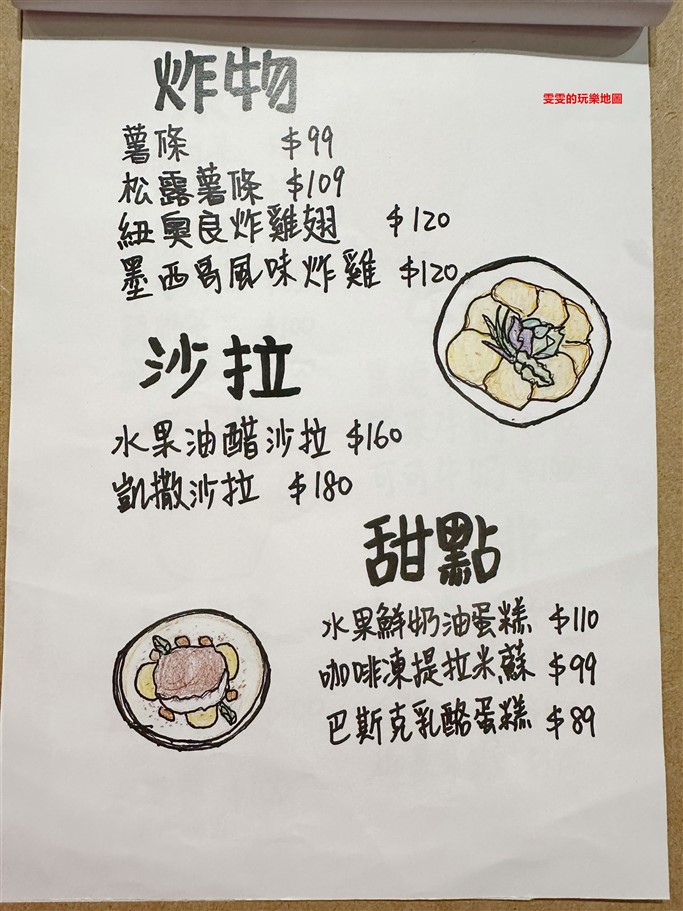 炸物
雯雯的玩樂地圖
薯條 $99
松露薯條 $109
紐奧良炸雞翅 $120
墨西哥風味炸雞 $120
沙拉
水果油醋沙拉 $160
凱撒沙拉 $180
甜點
水果鮮奶油蛋糕 $110
咖啡凍提拉米蘇 $99
巴斯克乳酪蛋糕 $89